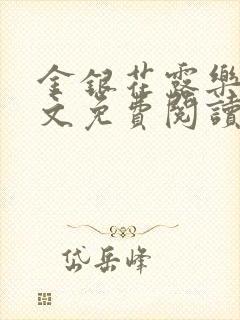 金銀花露樂
文免費閱讀
岱岳峰